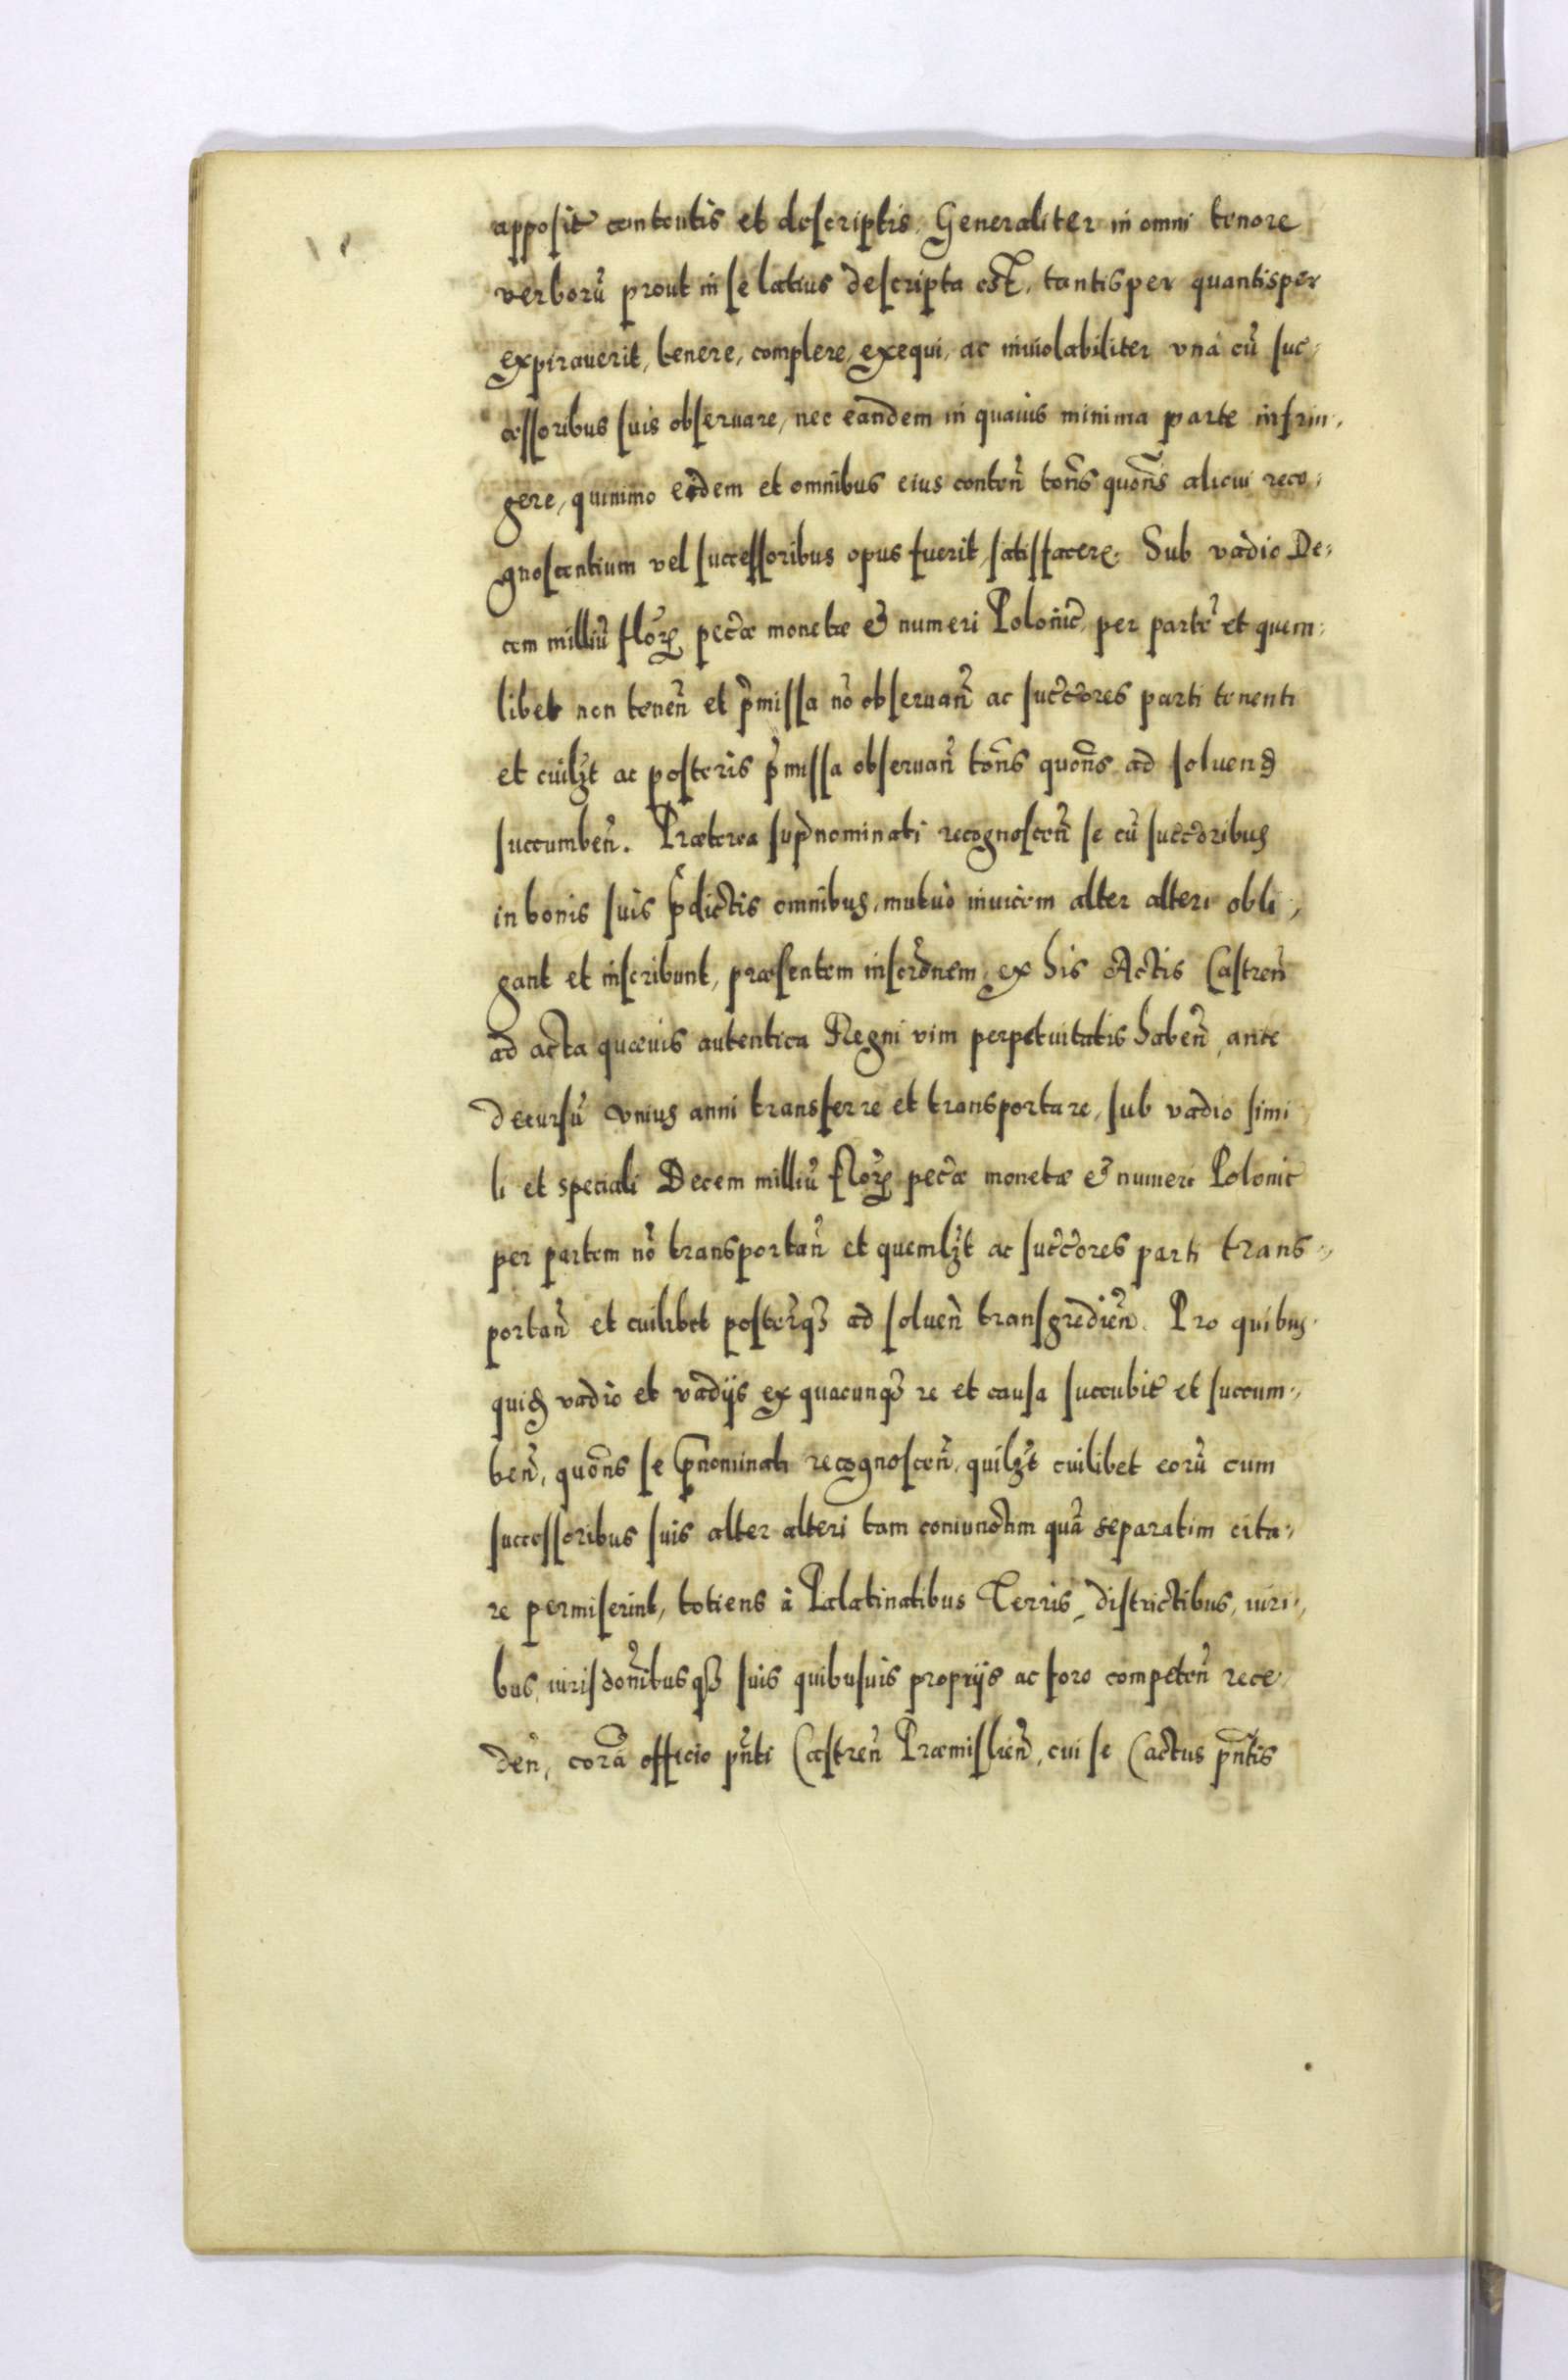 apposit contentis et descriptis. Generaliter in omni tenore
verborũ prout in se latius descripta est, tantisper quantisper
expirauerit, tenere, complere, exequi, ac inuiolabiliter vnà cũ suc-
cessoribus suis obseruare, nec eandem in quauis minima parte infrin-
gere, quinimo eidem et omnibus eius conteñ totiẽs quoñs alicui reco-
gnoscentium vel successoribus opus fuerit, satisfacere. Sub vadio De-
cem milliũ floꝝ pec̃æ monetæ & numeri Polonic̃, per partẽ et quem-
libet non teneñ et p̃missa nõ obseruañ ac succ̃ores parti tenenti
et cuilꝫt ac posteris p̃missa obseruañ tõns quõns ad soluend
succumbeñ. Præterea sup̃nominati recognosceñ se cũ succ̃oribus
in bonis suis p̃dictis omnibus, mutuò inuicem alter alteri obli-
gant et inscribunt, præsentem inscrõnem, ex his Actis Castreñ
ad acta quæuis autentica Regni vim perpetuitatis habeñ, ante
decursũ vnius anni transferre et transportare, sub vadio simi
li et speciali Decem milliũ floꝝ pec̃æ monetæ & numeri Polonic̃
per partem nõ transportañ et quemlꝫt ac succ̃ores parti trans-
portañ et cuilibet posterisqꝫ ad solueñ transgredieñ. Pro quibus
quid vadio et vadijs ex quacunqꝫ re et causa succubit̃ et succum-
beñ, quõns se p̃nominati recognosceñ, quilꝫt cuilibet eorũ cum
successoribus suis alter alteri tam coniunctim quã separatim cita-
re permiserint, totiens à Palatinatibus Terris, districtibus, iuri-
bus, iurisdoñibusqꝫ suis quibusuis proprijs ac foro competeñ rece
deñ, corã officio pñti Castreñ Præmislieñ, cui se (actus pñtis